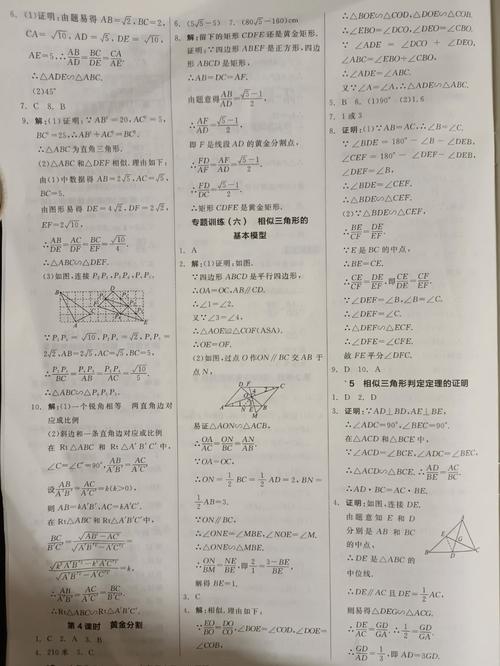 6. (1)证明:由题易得 AB=√2, BC=2,
CA=√10, AD=√5, DE=√10,
AE=5. ∴AB/AD=BC/DE=CA/AE.
∴△ADE∽△ABC.
(2)45°
7. C 8. B
9. 解:(1)证明:∵AB²=20, AC²=5,
BC²=25, ∴AB²+AC²=BC².
∴△ABC为直角三角形.
(2)△ABC和△DEF相似. 理由如下:
由(1)中数据得 AB=2√5, AC=√5,
BC=5.
由图形易得 DE=4√2, DF=2√2,
EF=2√10.
∴AB/DE=AC/DF=BC/EF=√10/4.
∴△ABC∽△DEF.
(3)如图,连接
∴△ABC∽
10. 解:(1)一个锐角相等 两直角边对
应成比例
(2)斜边和一条直角边对应成比例
在 Rt△ABC 和 Rt△A'B'C'中,
∠C=∠C'=90°, AB/A'B'=AC/A'C'.
设AB/A'B'=AC/A'C'=k(k>0),
则 AB=kA'B', AC=kA'C'.
在Rt△ABC和Rt△A'B'C'中,
BC/B'C'=√(AB²−AC²)/√(A'B'²−A'C'²)=
√(k²A'B'²−k²A'C'²)/√(A'B'²−A'C'²)=k.
∴AB/A'B'=AC/A'C'=BC/B'C'.
∴Rt△ABC∽Rt△A'B'C'.
第4课时 黄金分割
1. C 2. A 3. B
4. 210米 5. C
6. (5√5−5) 7. (80√5−160)cm
8. 解:留下的矩形CDFE还是黄金矩形.
证明:∵四边形ABEF是正方形,四边
形ABCD是矩形,
∴AB=DC=AF.
由题意得AB/AD=(√5−1)/2,
∴AF/AD=(√5−1)/2,
即F是线段AD的黄金分割点,
∴FD/AF=AF/AD=(√5−1)/2.
∴FD/DC=(√5−1)/2.
∴矩形CDFE是黄金矩形.
专题训练(六) 相似三角形的
基本模型
1. A
2. 解:(1)证明:如图.
∵四边形ABCD是平行四边形,
∴OA=OC, AB∥CD.
∴∠1=∠2.
又∵∠3=∠4,
∴△AOE≌△COF(ASA).
∴OE=OF.
(2)如图,过点O作ON∥BC交AB于
点N,
易证△AON∽△ACB,
∴OA/AC=ON/BC=AN/AB.
∵OA=OC,
∴ON=1/2 BC=1/2 AD=2, BN=
1/2 AB=3.
∵ON∥BC,
∴∠ONE=∠MBE, ∠NOE=∠M.
∴△ONE∽△MBE.
∴ON/MB=NE/BE, 即2/1=(3−BE)/BE.
解得BE=1.
3. C
4. 解:相似. 理由如下:
∵EO/BO=DO/CO, ∠BOE=∠COD, ∠DOE=
∠COB,
∴△BOE∽△COD, △DOE∽△COB.
∴∠EBO=∠DCO, ∠DEO=∠CBO.
∵∠ADE=∠DCO+∠DEO,
∠ABC=∠EBO+∠CBO,
∴∠ADE=∠ABC.
又∵∠A=∠A, ∴△ADE∽△ABC.
5. B 6. (1)90° (2)1.6
7. 1或3
8. 证明:(1)∵AB=AC, ∴∠B=∠C.
∵∠BDE=180°−∠B−∠DEB,
∠CEF=180°−∠DEF−∠DEB,
∠DEF=∠B,
∴∠BDE=∠CEF.
∴△BDE∽△CEF.
(2)∵△BDE∽△CEF,
∴BE/CF=DE/EF.
∵E是BC的中点,
∴BE=CE.
∴CE/CF=DE/EF, 即CE/DE=CF/EF.
∵∠DEF=∠B, ∠B=∠C.
∴∠DEF=∠C.
∴△DEF∽△ECF.
∴∠DFE=∠CFE.
故FE平分∠DFC.
9. D 10. A
*5 相似三角形判定定理的证明
1. D 2. D
3. 证明:∵AD⊥BD, AE⊥BE,
∴∠ADC=90°, ∠BEC=90°.
在△ACD和△BCE中,
∵∠ACD=∠BCE, ∠ADC=∠BEC,
∴△ACD∽△BCE. ∴AD/BE=AC/BC.
∴AD·BC=AC·BE.
4. 证明:如图,连接DE.
由题意知E和D
分别是AB和BC
的中点,
∴DE是△ABC的
中位线.
∴DE∥AC且DE=1/2 AC,
则易得△DEG∽△ACG.
∴DE/AC=GD/GA. ∴1/2=GD/GA.
∴GD/AD=1/3, 即AD=3GD.